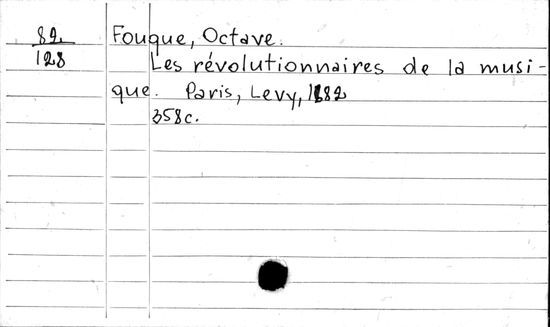 82
128
Fouque, Octave.
Les révolutionnaires de la musi-
que. Paris, Levy, 1882
358c.